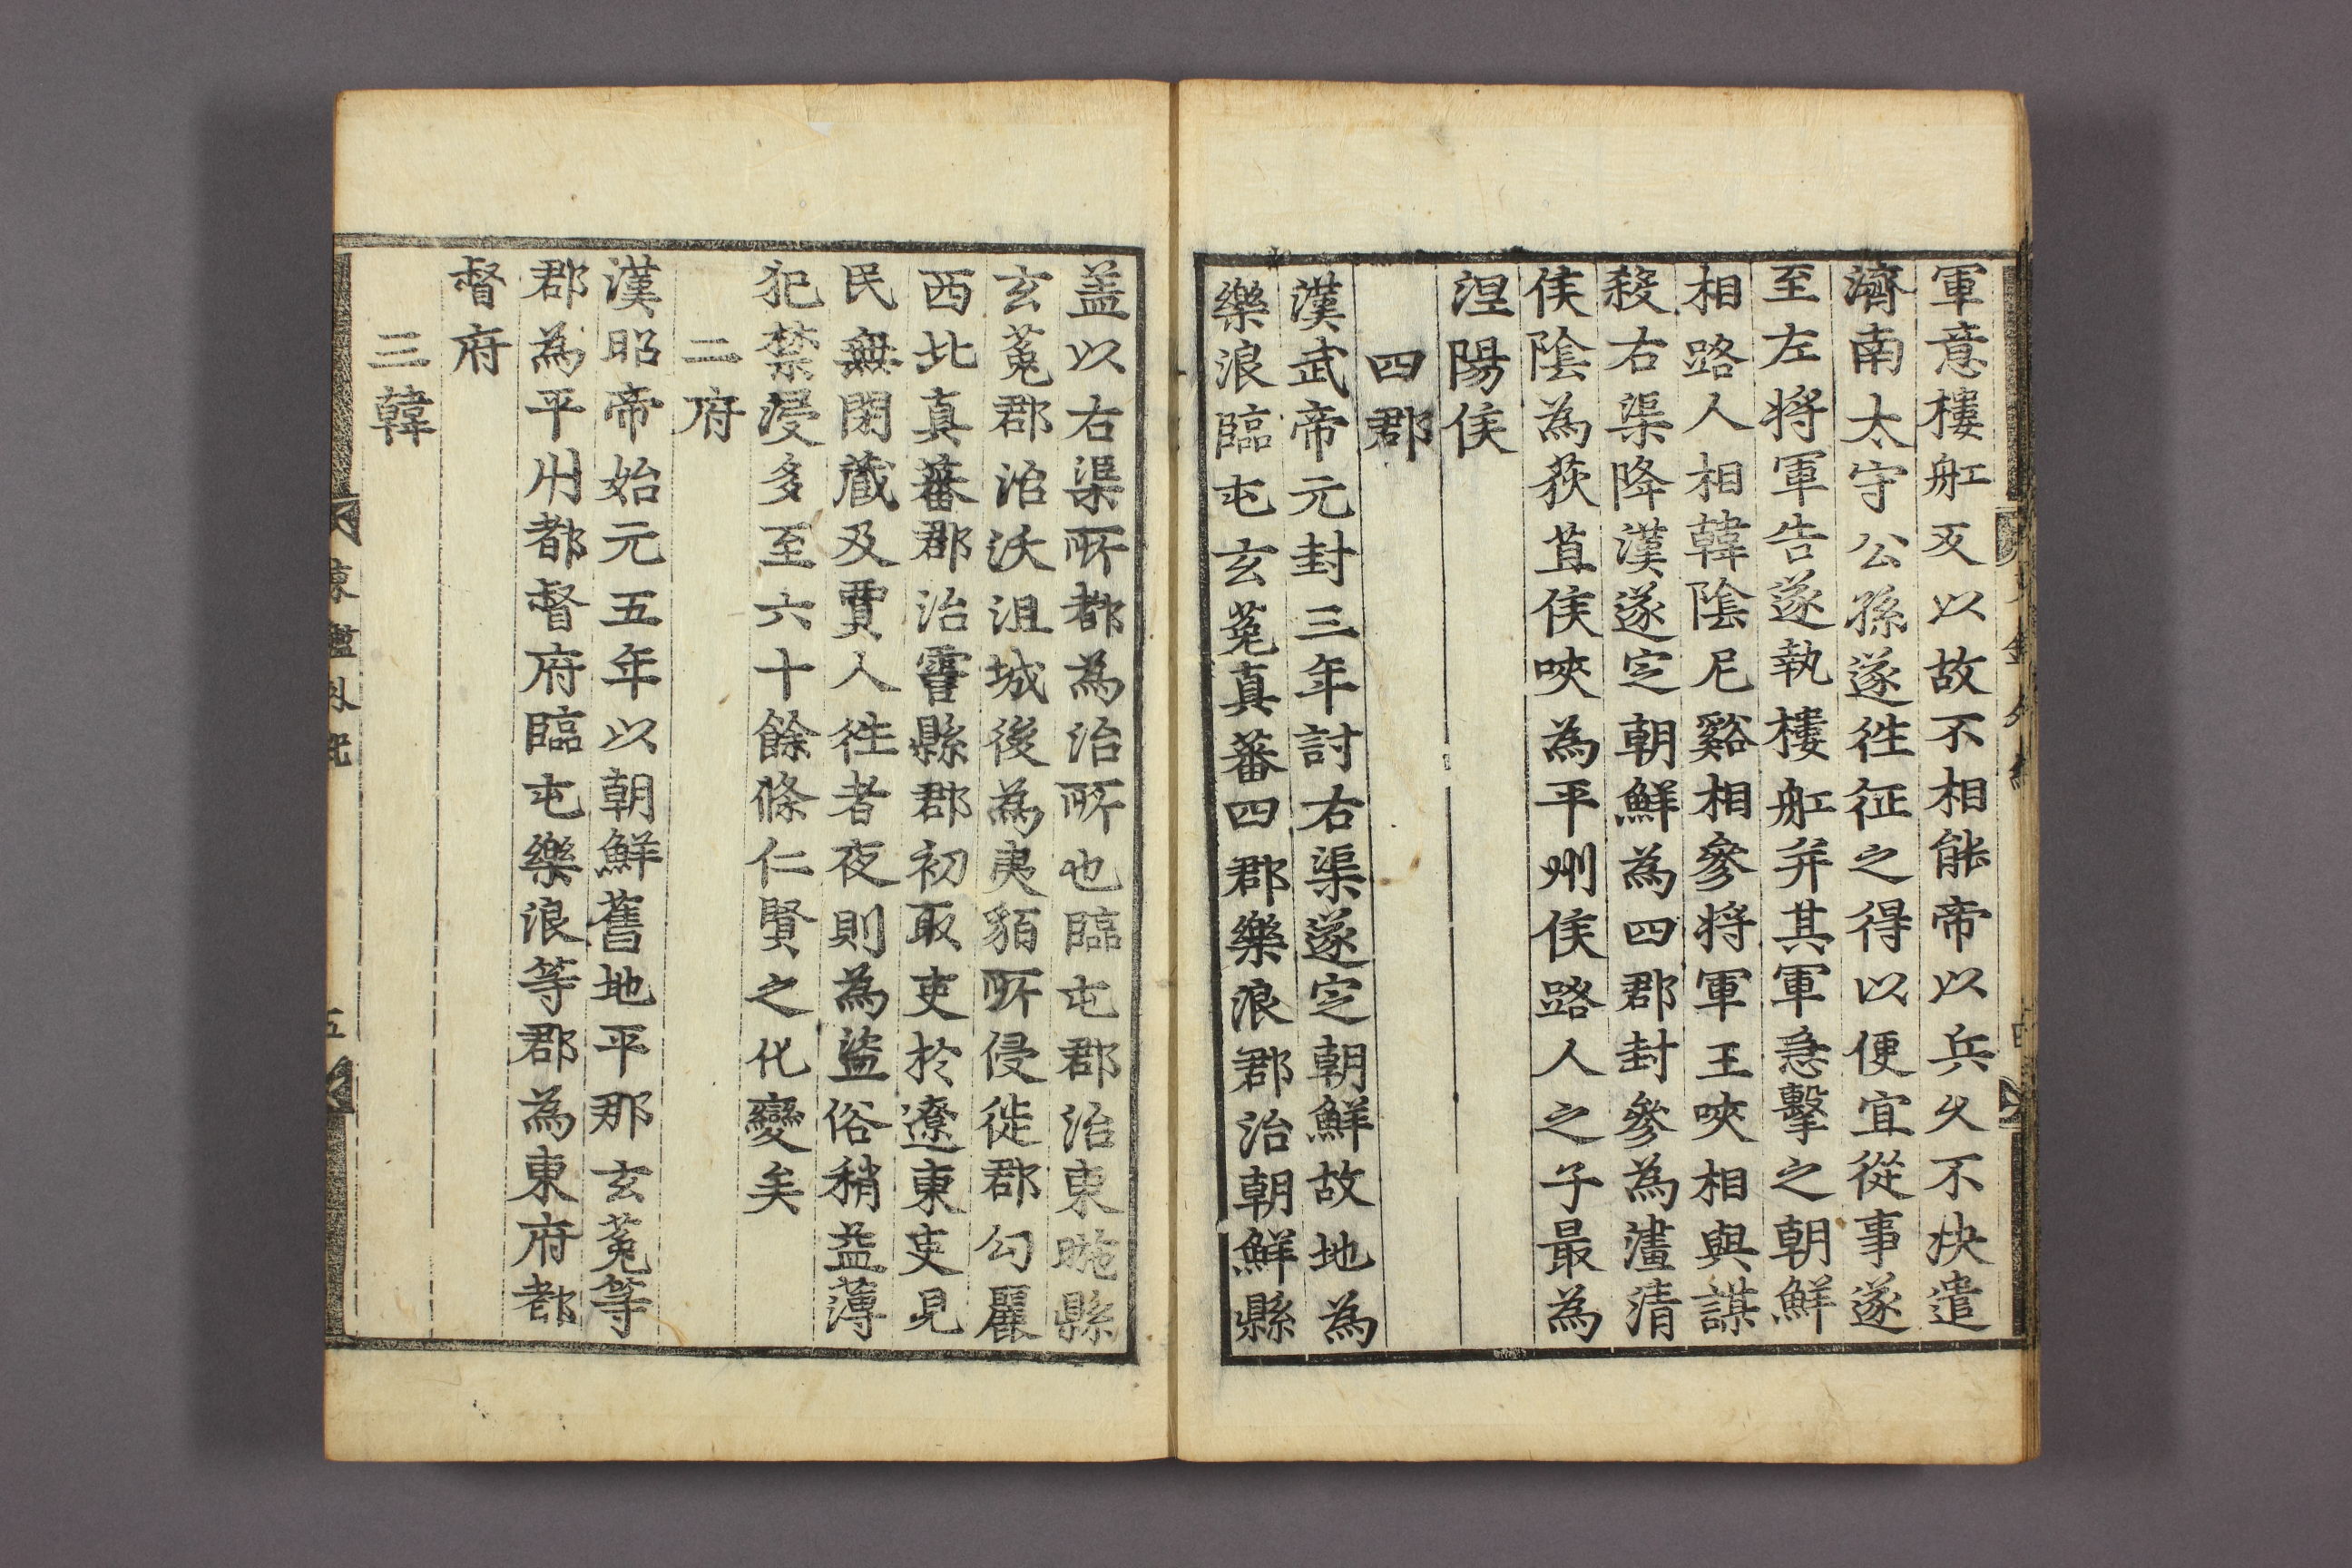 軍意樓舡又以故不相能帝以兵久不决遣
濟南太守公孫遂徃征之得以便宜從事遂
至左將軍告遂執樓舡并其軍急擊之朝鮮
相路人相韓陰尼谿相參將軍王唊相與謀
殺右渠降漢遂定朝鮮為四郡封參為澅清
侯陰為荻苴侯唊為平州侯路人之子最為
涅陽侯
四郡
漢武帝元封三年討右渠遂定朝鮮故地為
樂浪臨屯玄菟真蕃四郡樂浪郡治朝鮮縣
盖以右渠所都為治所也臨屯郡治東暆縣
玄菟郡治沃沮城後為夷貊所侵徙郡勾麗
西北真蕃郡治霅縣郡初取吏於遼東吏見
民無閉蔵及賈人徃者夜則為盜俗稍益薄
犯禁浸多至六十餘條仁賢之化變矣
二府
漢昭帝始元五年以朝鮮舊地平那玄菟等
郡為平州都督府臨屯樂浪等郡為東府都
督府
三韓
東鑑外紀
五